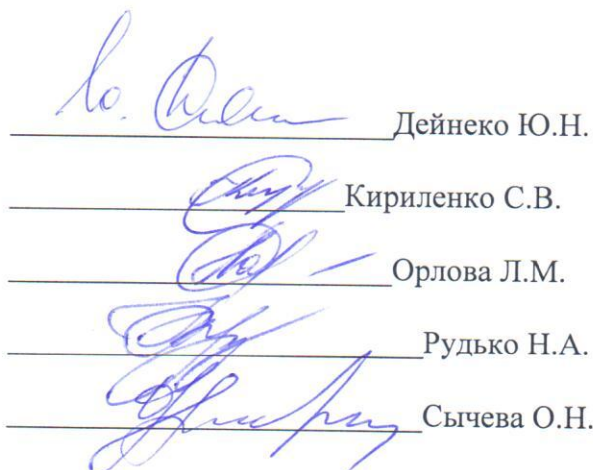 Дейнеко Ю.Н.
Кириленко С.В.
Орлова Л.М.
Рудько Н.А.
Сычева О.Н.